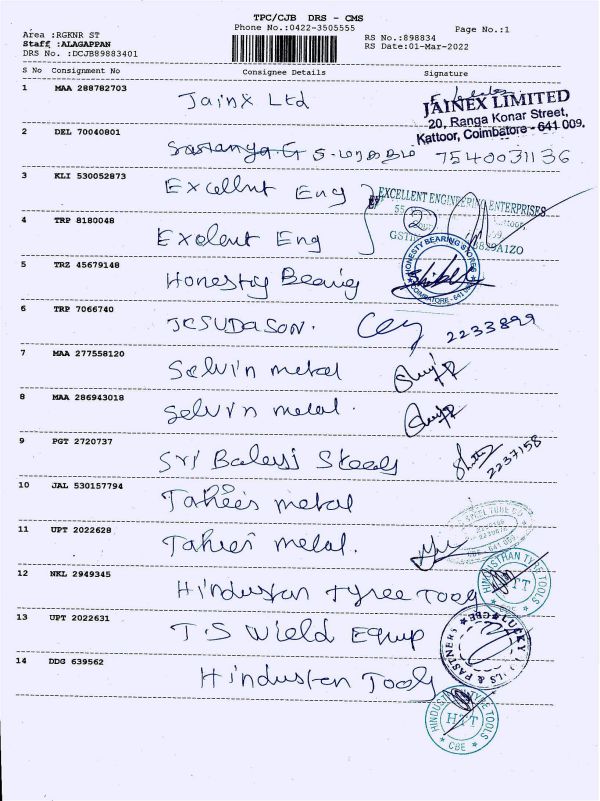 TPC/CJB DRS - CMS
Phone No.:0422-3505555
Page No.:1
Area :RGKNR ST
Staff :ALAGAPPAN
DRS No. :DCJB89883401
RS No.:898834
RS Date:01-Mar-2022
S No Consignment No Consignee Details Signature
1 MAA 288782703
Jainx Ltd
JAINEX LIMITED
20, Ranga Konar Street,
Kattoor, Coimbatore - 641 009.
2 DEL 70040801
7540031136
3 KLI 530052873
Excellnt Eng
EXCELLENT ENGINEERING ENTERPRISES
4 TRP 8180048
Exelent Eng
2
GSTIN
HONESTY BEARING STORES
COIMBATORE - 641
5 TRZ 45679148
Honesty Bearing
6 TRP 7066740
JESUDASON. 2233899
7 MAA 277558120
Selvin metal
8 MAA 286943018
Selvin metal.
9 PGT 2720737
Sri Balaji Steels
2237158
10 JAL 530157794
Tahees metal
11 UPT 2022628
Tahees metal.
12 NKL 2949345
Hindustan tyree Tools
HINDUSTHAN TYRE TOOLS
CBE
13 UPT 2022631
T.S Wield Equip
LUCKY
& PARTNERS
CBE
14 DDG 639562
Hindusten Tools
HINDUSTHAN TYRE TOOLS
HTT
CBE